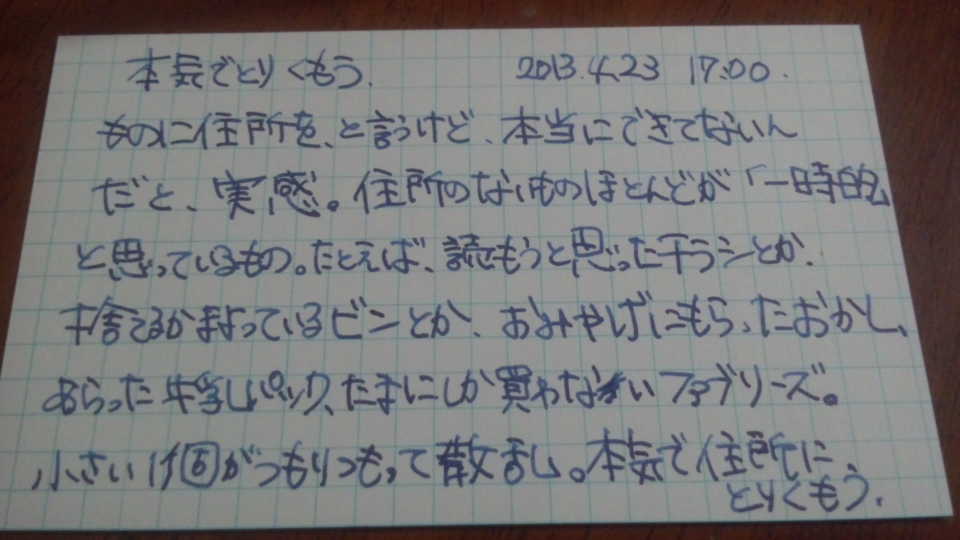 本気でとりくもう. 2013.4.23 17:00.
ものに住所を、と言うけど、本当にできてないん
だと、実感。住所のないもののほとんどが「一時的」
と思っているもの。たとえば、読もうと思ったチラシとか、
捨てるかまよっているビンとか、おみやげにもらったおかし、
あらった牛乳パック、たまにしか買わないファブリーズ。
小さい「仮」がつもりつもって散乱し。本気で住所に、
とりくもう.